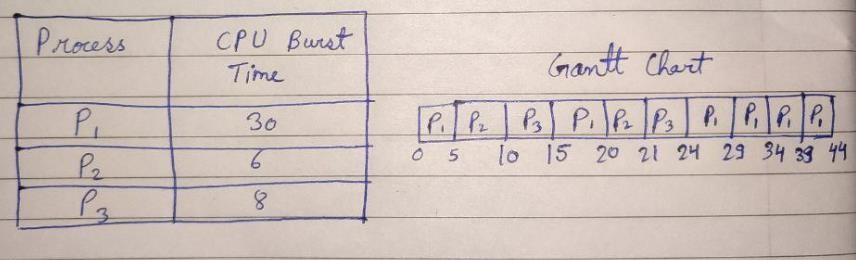 Process CPU Burst Time
P1 30
P2 6
P3 8
Gantt Chart
P1 P2 P3 P1 P2 P3 P1 P1 P1 P1
0 5 10 15 20 21 24 29 34 39 44